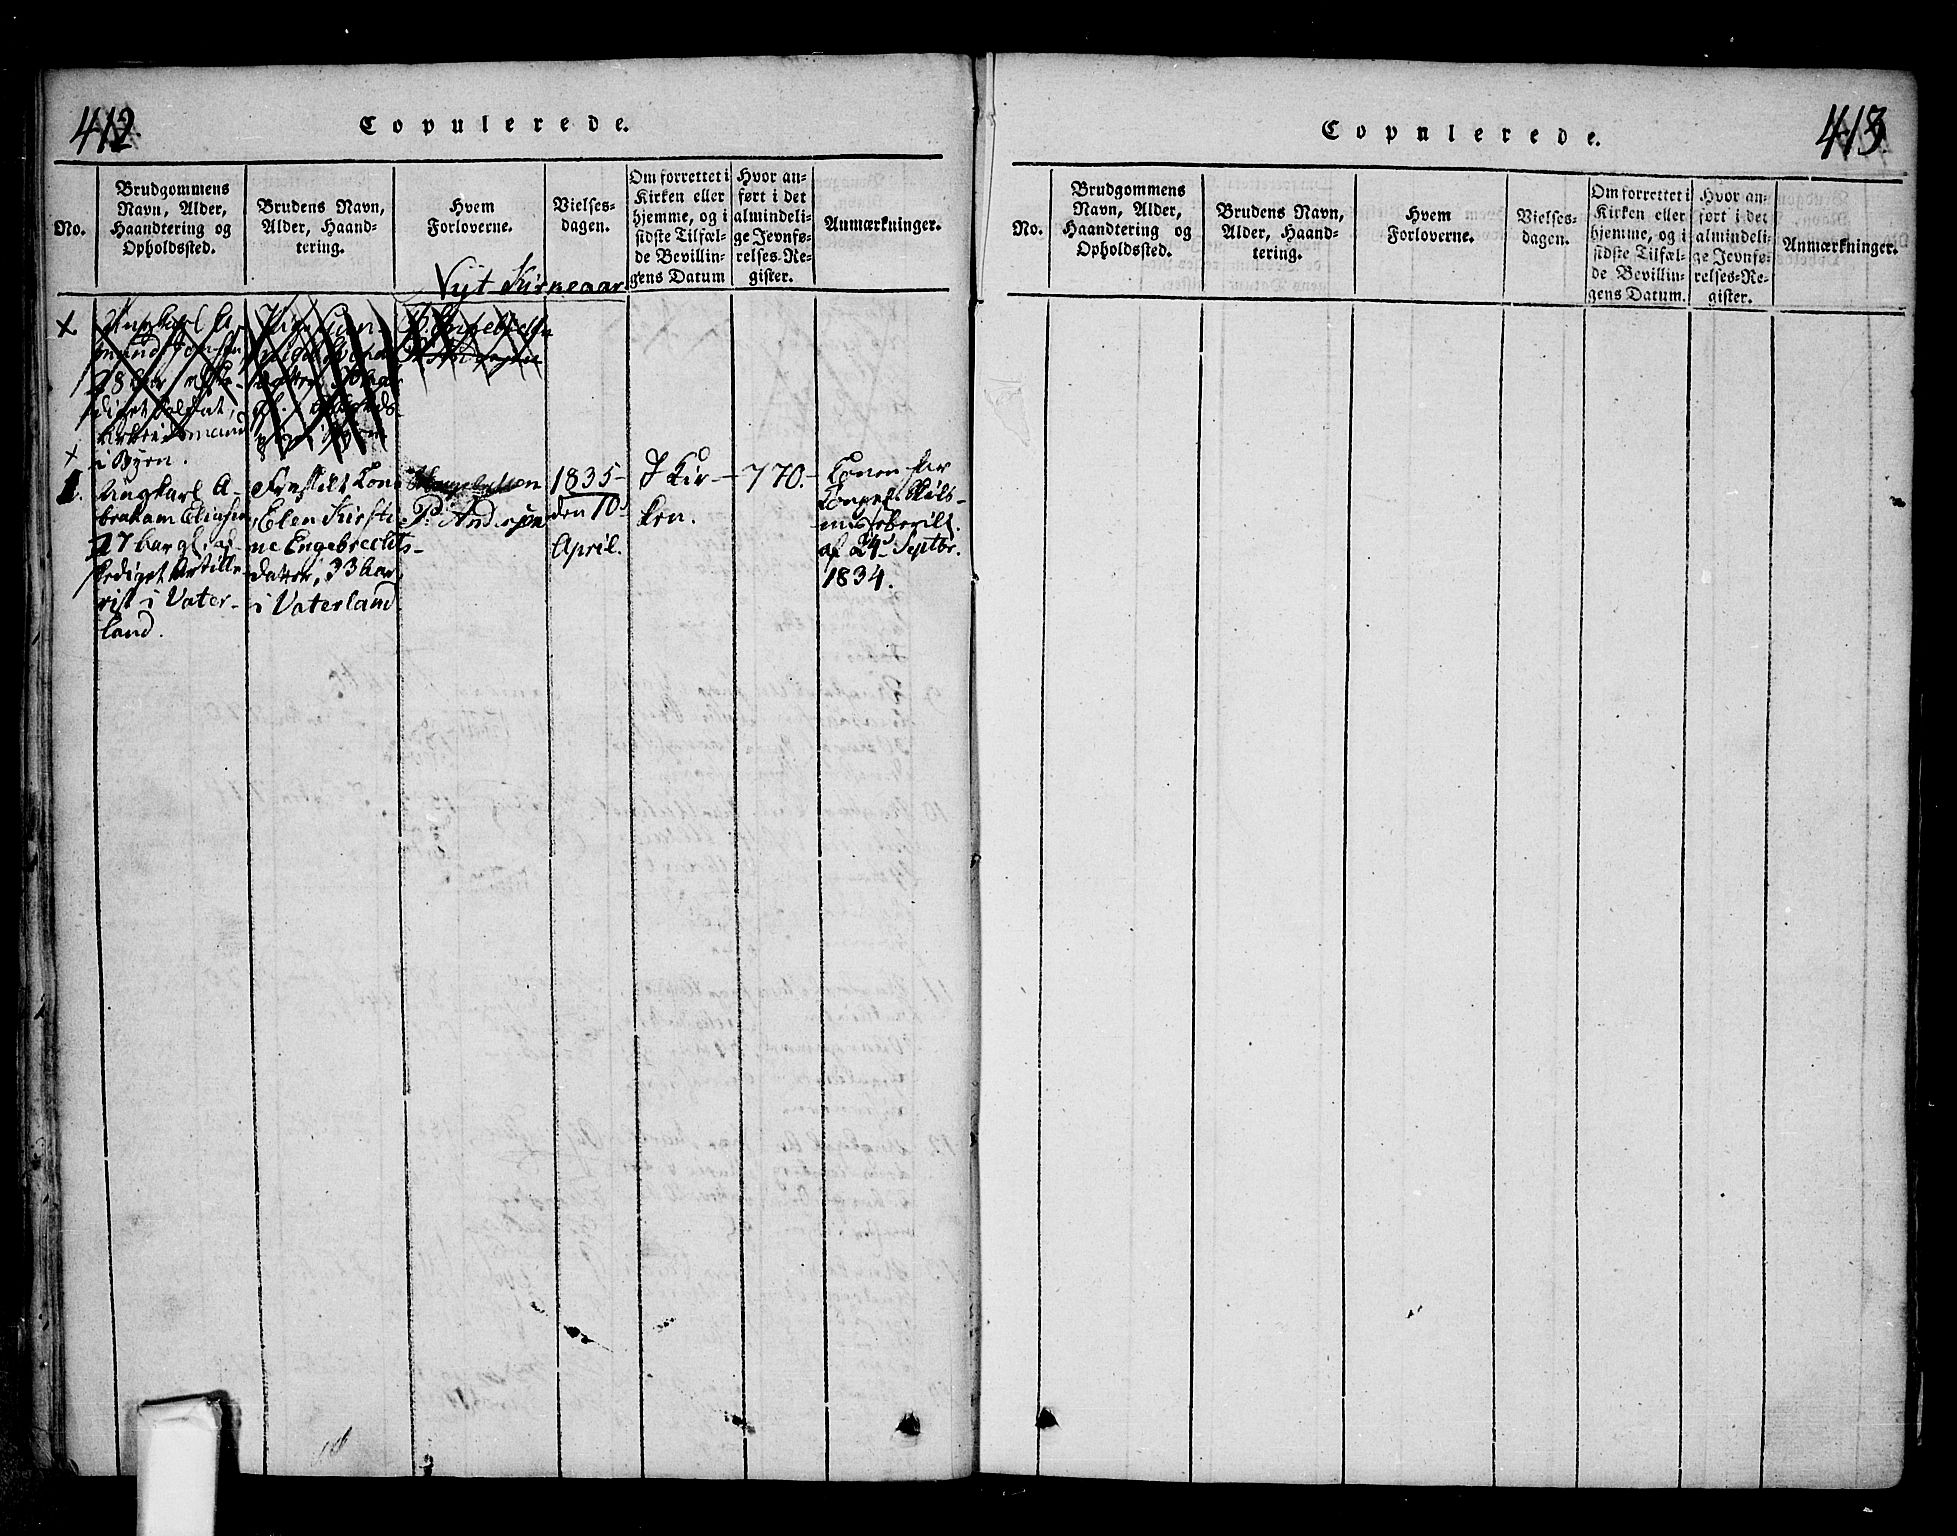 412.
Copulerede.
No.
Brudgommens
Navn, Alder,
Haandtering og
Opholdssted.
Brudens Navn,
Alder, Haand-
tering.
Hvem
Forloverne.
Vielses-
dagen.
Om forrettet i
Kirken eller
hjemme, og i
sidste Tilfæl-
de Bevillin-
gens Datum
Hvor an-
ført i det
almindeli-
ge Jevnfø-
relses-Re-
gister.
Anmærkninger.
Nyt Kirkeaar
+
Ungkarl A-
28 Aar
Soldat,
Arbeidsmand
i Byen.
+
1.
Ungkarl A-
braham Eliasen
27 Aar gl. af-
skediget Artille-
rist i Vater-
land.
Fraskilt Kone
Elen Kirsti-
ne Engebrechts-
datter, 33 Aar,
i Vaterland
P. Andersen
1835
den 10de
April.
I Kir-
ken.
770.
Konen har
Kongel. Skils-
af 24de Septbr.
1834.
413.
Copulerede.
No.
Brudgommens
Navn, Alder,
Haandtering og
Opholdssted.
Brudens Navn,
Alder, Haand-
tering.
Hvem
Forloverne.
Vielses-
dagen.
Om forrettet i
Kirken eller
hjemme, og i
sidste Tilfæl-
de Bevillin-
gens Datum.
Hvor an-
ført i det
almindeli-
ge Jevnfø-
relses-Re-
gister.
Anmærkninger.